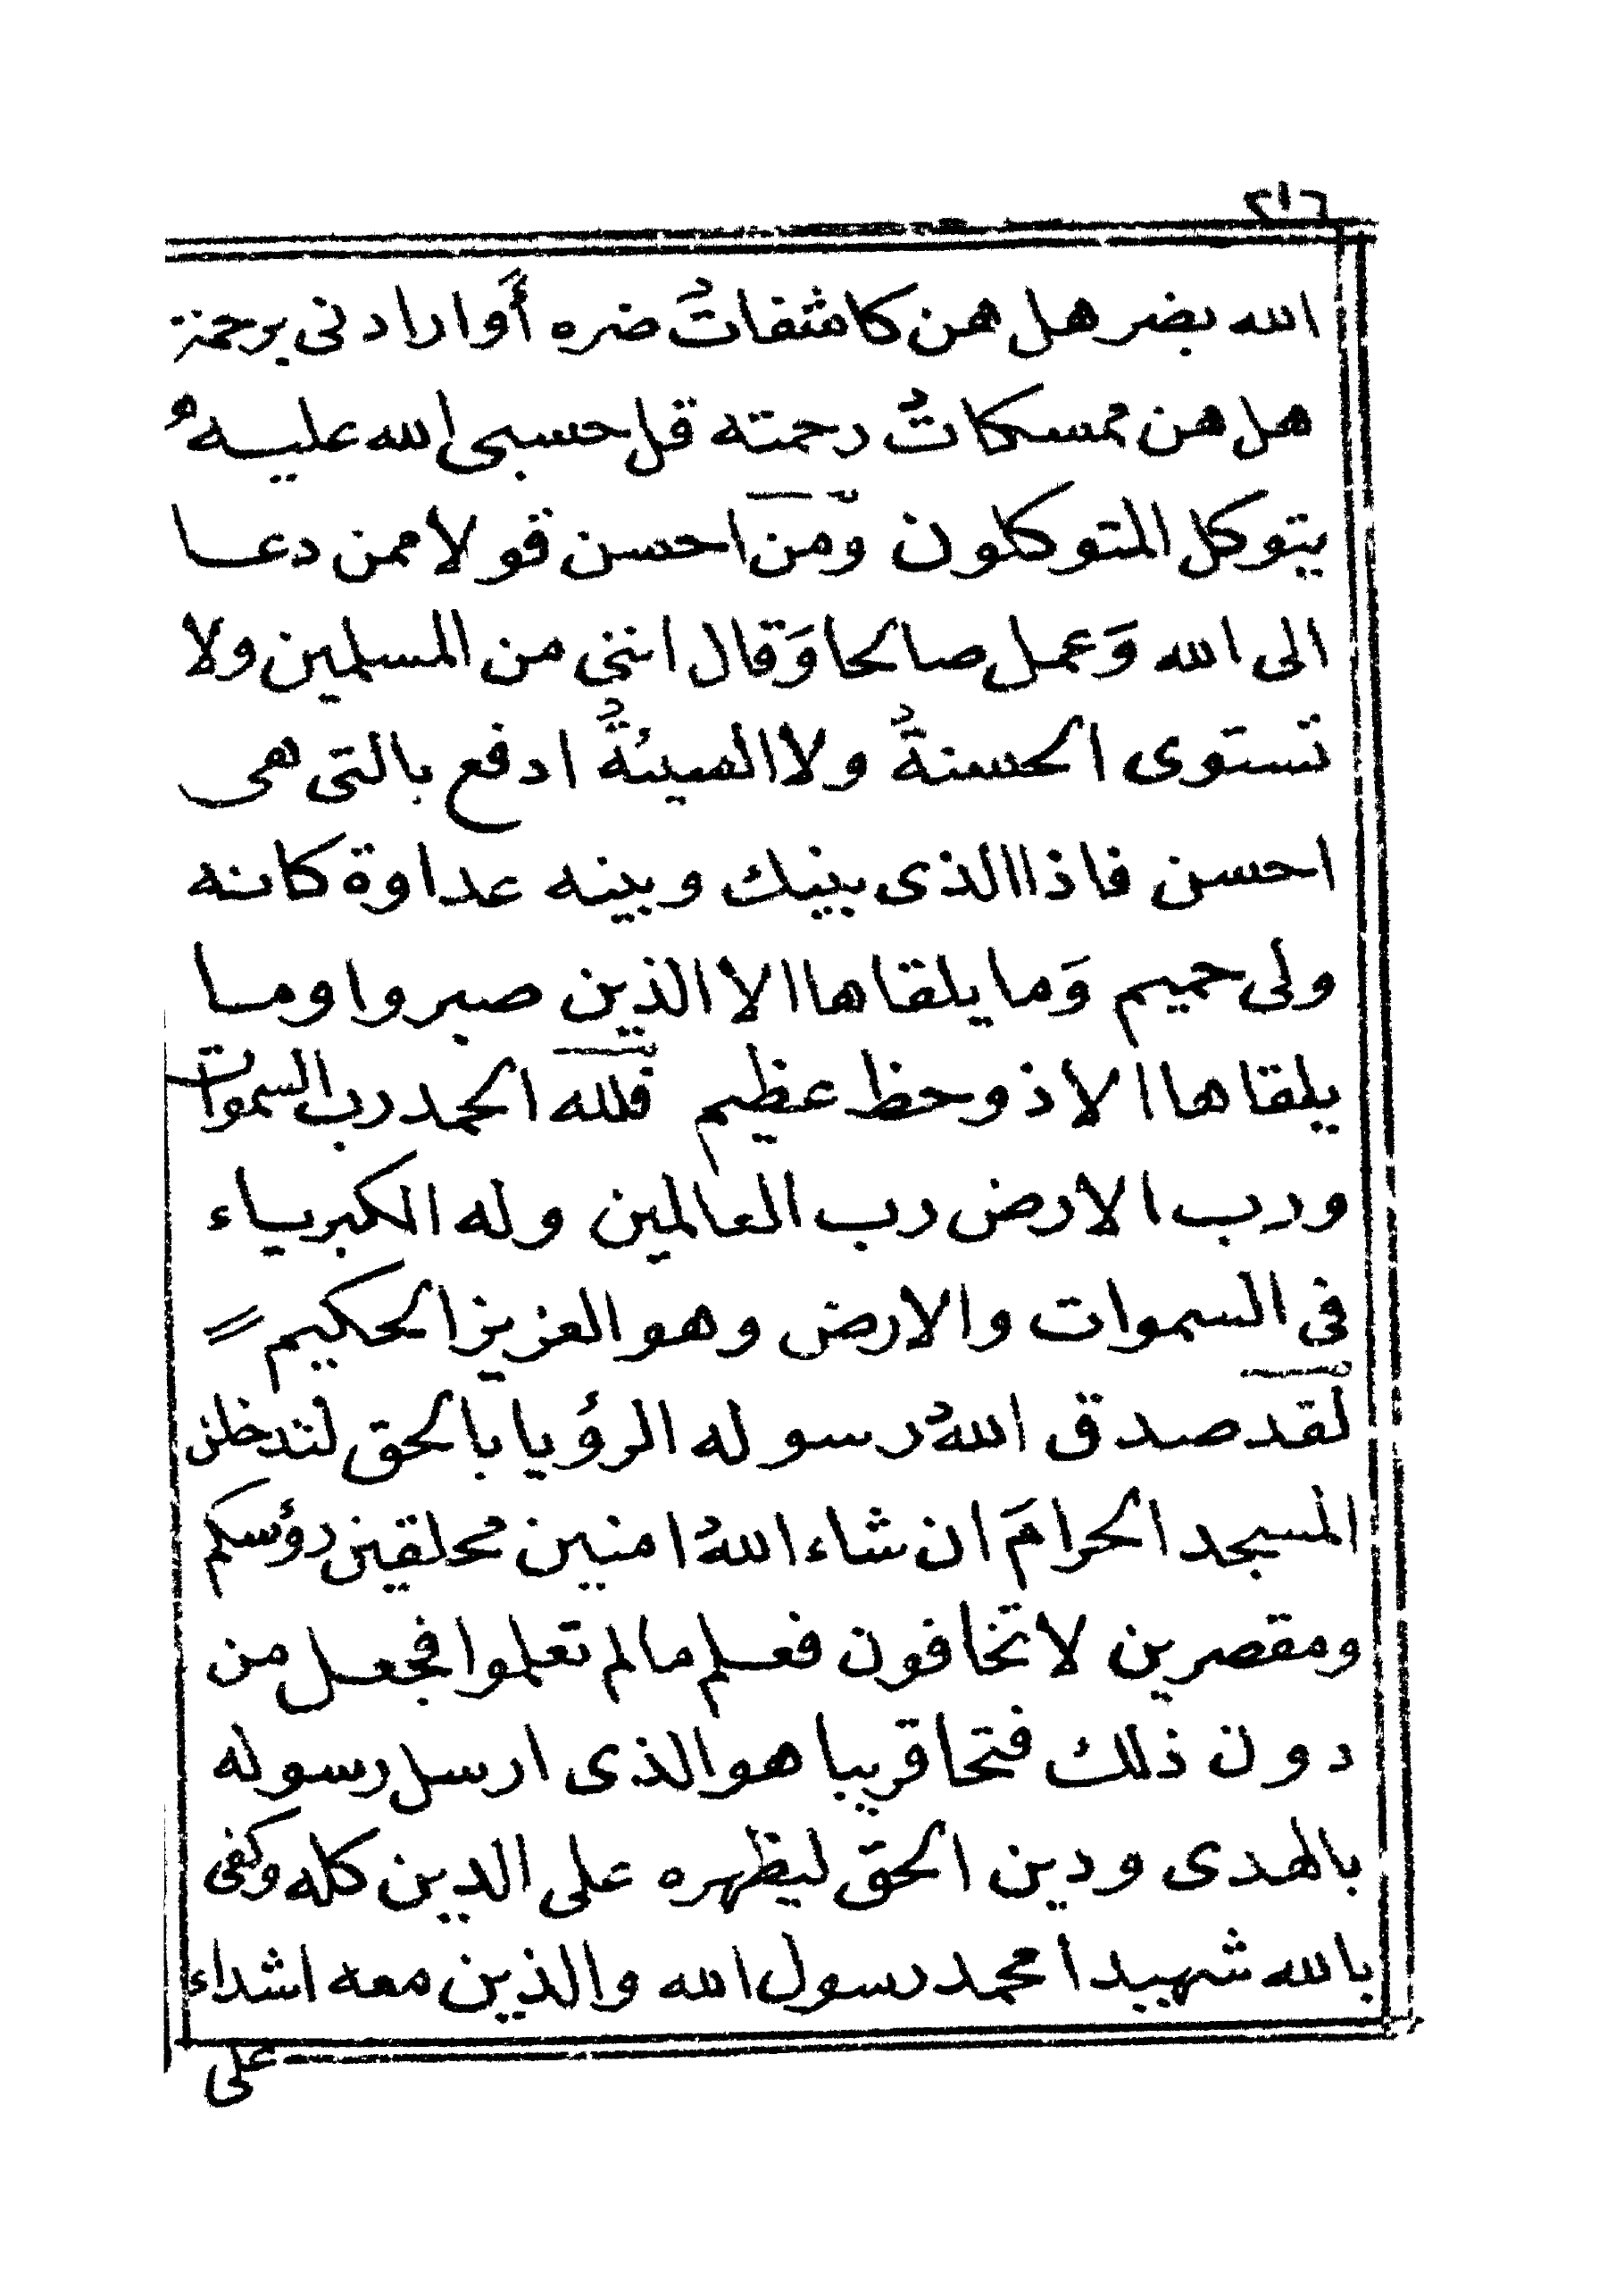 ٢١٦
الله بضر هل هن كاشفاتُ ضره أَو ارادنى برحمة
هل هن ممسكاتُ رحمته قل حسبى الله عليه
يتوكل المتوكلون ومن احسن قولا ممن دعا
الى الله وَعمل صالحا وَقال اننى من المسلمين ولا
تستوى الحسنةُ ولا السيئةُ ادفع بالتى هى
احسن فاذا الذى بينك وبينه عداوة كانه
ولى حميم وَما يلقاها الا الذين صبروا وما
يلقاها الا ذو حظ عظيم فلله الحمد رب السموات
ورب الارض رب العالمين وله الكبرياء
فى السموات والارض وهو العزيز الحكيم
لقد صدق اللهُ رسوله الرؤيا بالحق لتدخلن
المسجد الحرامَ ان شاء اللهُ امنين محلقين رؤسكم
ومقصرين لا تخافون فعلم مالم تعلموا فجعل من
دون ذلك فتحا قريبا هو الذى ارسل رسوله
بالهدى ودين الحق ليظهره على الدين كله وكفى
بالله شهيدا محمد رسول الله والذين معه اشداء
على